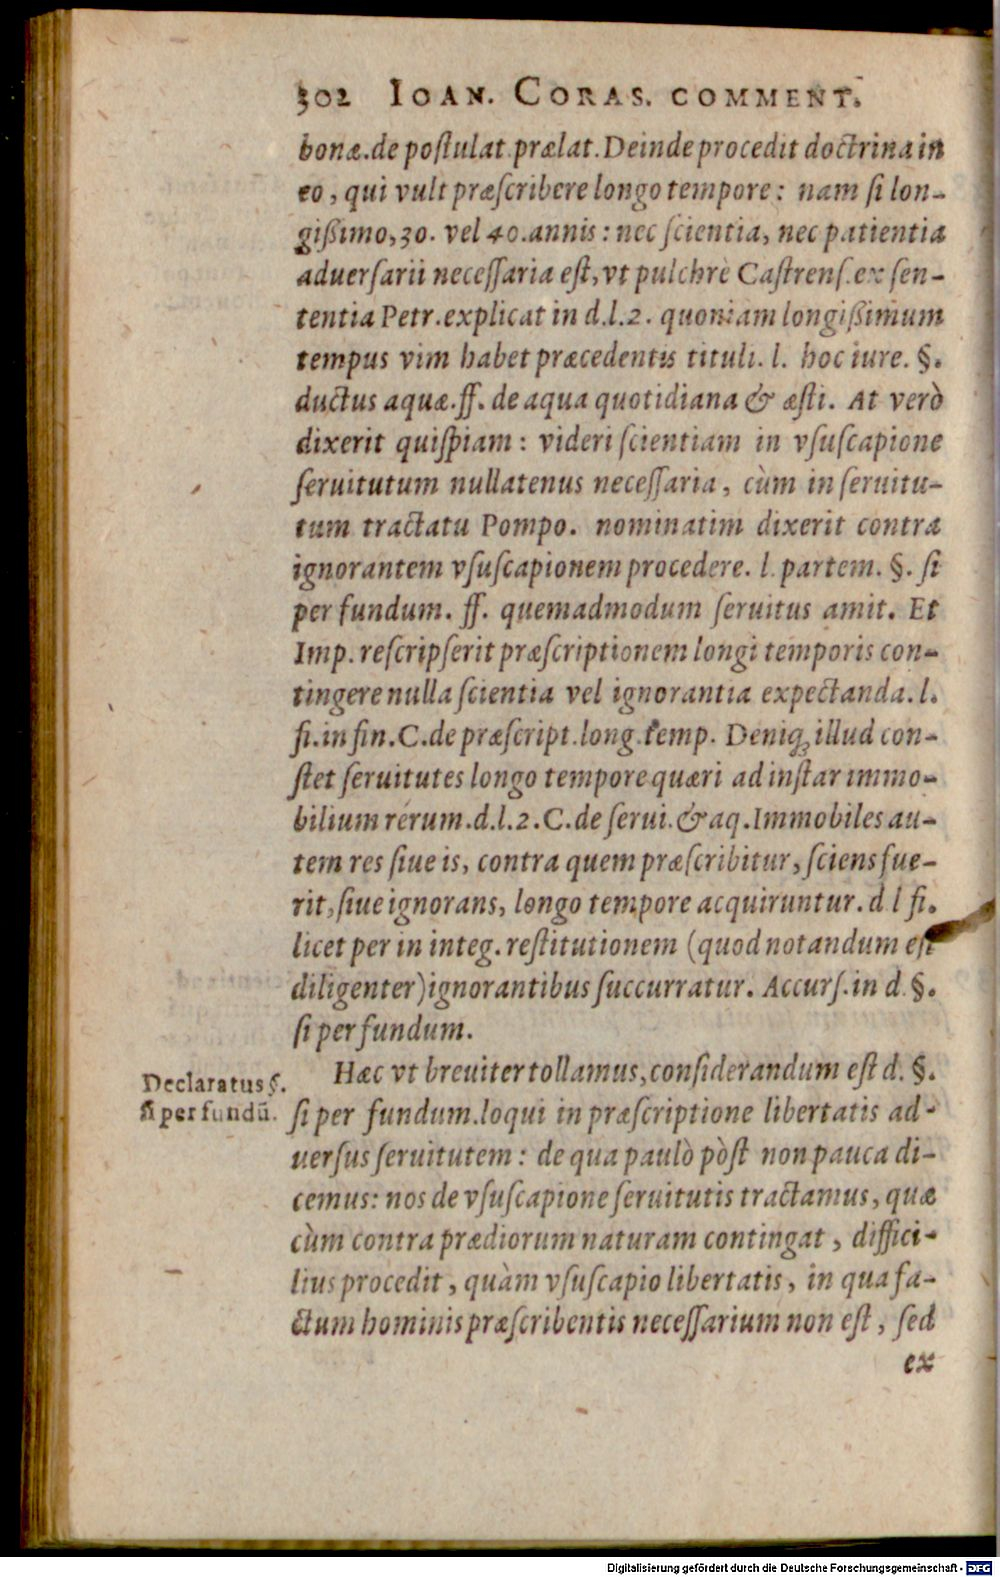 302 IOAN. CORAS. COMMENT.
bonæ.de poſtulat.prælat.Deinde procedit doctrina in
eo, qui vult præſcribere longo tempore: nam ſi lon-
gißimo,30. vel 40.annis: nec ſcientia, nec patientia
aduerſarii neceſſaria eſt,vt pulchrè Caſtrenſ.ex ſen-
tentia Petr.explicat in d.l.2. quoniam longißimum
tempus vim habet præcedentis tituli. l. hoc iure. §.
ductus aquæ.ff. de aqua quotidiana & æſti. At verò
dixerit quiſpiam: videri ſcientiam in vſuſcapione
ſeruitutum nullatenus neceſſaria, cùm in ſeruitu-
tum tractatu Pompo. nominatim dixerit contra
ignorantem vſuſcapionem procedere. l. partem. §. ſi
per fundum. ff. quemadmodum ſeruitus amit. Et
Imp. reſcripſerit præſcriptionem longi temporis con-
tingere nulla ſcientia vel ignorantia expectanda. l.
fi.in fin.C.de præſcript.long.temp. Deniq; illud con-
ſtet ſeruitutes longo tempore quæri ad inſtar immo-
bilium rerum.d.l.2.C.de ſerui.& aq.Immobiles au-
tem res ſiue is, contra quem præſcribitur, ſciens fue-
rit, ſiue ignorans, longo tempore acquiruntur. d l fi.
licet per in integ. reſtitutionem (quod notandum eſt
diligenter)ignorantibus ſuccurratur. Accurſ.in d.§.
ſi per fundum.
Hæc vt breuiter tollamus,conſiderandum eſt d. §.
Declaratus §.
ſi per fundũ.
ſi per fundum.loqui in præſcriptione libertatis ad-
uerſus ſeruitutem: de qua paulò pòſt non pauca di-
cemus: nos de vſuſcapione ſeruitutis tractamus, quæ
cùm contra prædiorum naturam contingat, diffici-
lius procedit, quàm vſuſcapio libertatis, in qua fa-
ctum hominis præſcribentis neceſſarium non eſt, ſed
ex
Digitalisierung gefördert durch die Deutsche Forschungsgemeinschaft - DFG